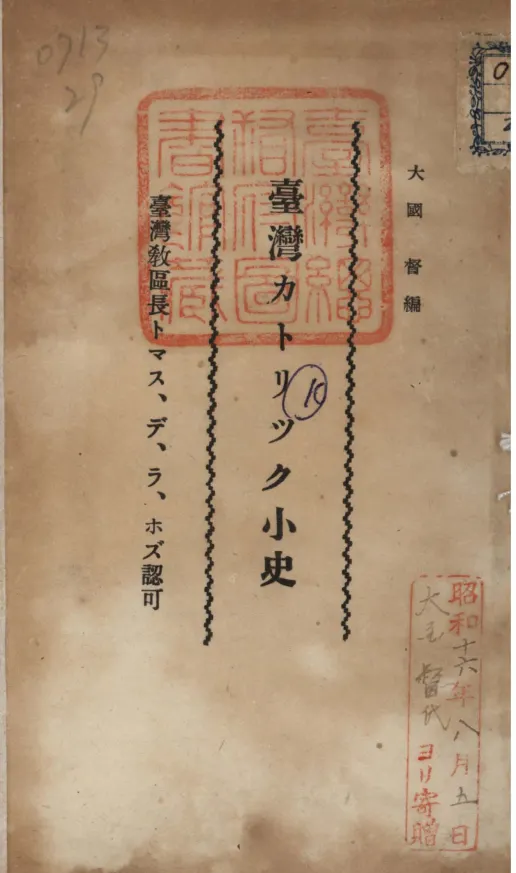 大國督編
臺灣カトリック小史
臺灣教區長トマス、デ、ラ、ホズ認可
臺灣總督府圖書館藏
昭和十六年八月五日
大國督氏
ヨリ寄贈
0713
29